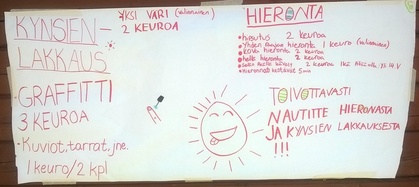 KYNSIEN-
LAKKAUS
YKSI VÄRI (valinnainen)
2 KEUROA
·GRAFFITTI
3 KEUROA
·Kuviot, tarrat, jne.
1 keuro/2 kpl
HIERONTA
·hieutus 2 keuroa
·Yhden hieronta 1 keuro (valinnainen)
·kova hieronta 2 keuroa
·hellä hieronta 2 keuroa
2 keuroa
·hieronnat kestävät 5 min
TOIVOTTAVASTI
NAUTITTE HIERONASTA
JA KYNSIEN LAKKAUKSESTA
!!!